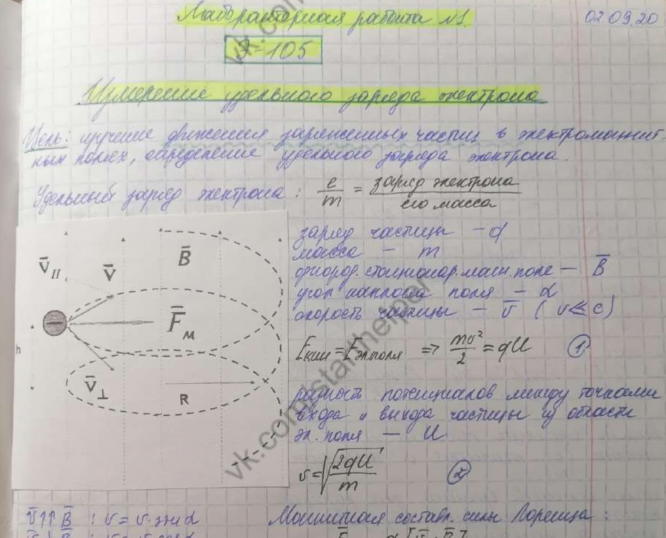 Лабораторная работа №1.
02.09.20
Э-105
Измерение удельного заряда электрона
Цель: изучение движения заряженных частиц в электромагнит-
ных полях, определение удельного заряда электрона.
Удельный заряд электрона: e/m = заряд электрона / его масса
заряд частицы - q
масса - m
однород. стационар. магн. поле - B̄
угол наклона поля - α
скорость частицы - v̄ (v ≪ c)
V̄|| V̄ B̄
F̄м
h
V̄⊥ R
Eкин = Eэл.поля ⇒ mv²/2 = qU ①
разность потенциалов между точками
входа и выхода частицы из области
эл. поля - U
v = √(2qU/m) ②
v̄⇈B̄ : v = v·
Магнитная составл. силы Лоренца:
vk.com/starthelper